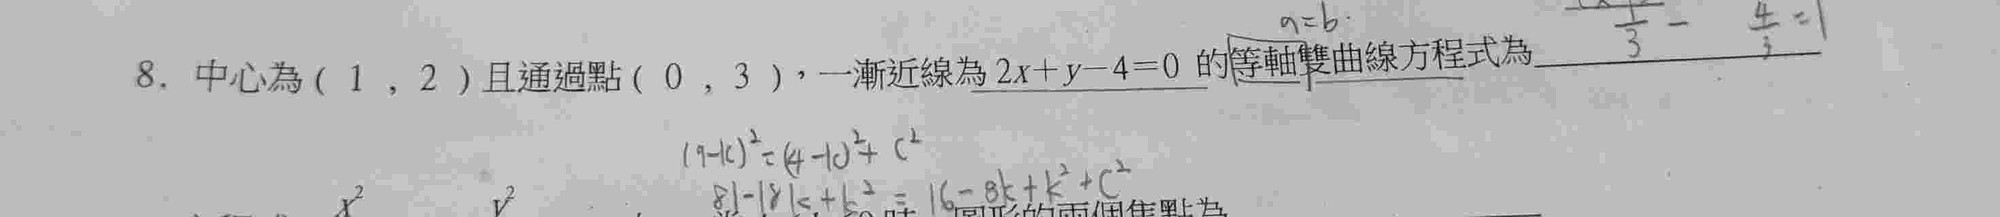 a=b.
1/3 - 4/3 =1
8. 中心為( 1 , 2 )且通過點( 0 , 3 ),一漸近線為 2x+y-4=0 的等軸雙曲線方程式為
(9-k)²=(4-k)²+ c²
81-18k+k² = 16-8k+k²+c²
x² y² 圓形的兩個焦點為